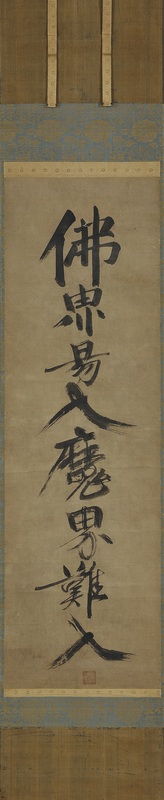 佛界易入魔界難入